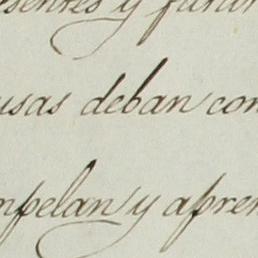 sentes y futur
usas deban con
npelan y apren